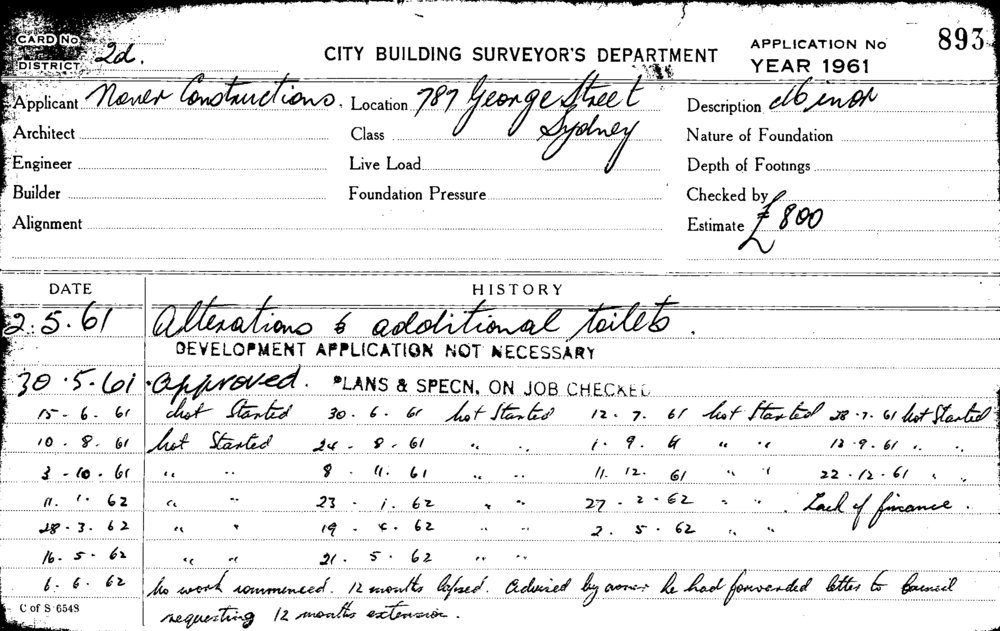 CARD No CITY BUILDING SURVEYOR'S DEPARTMENT APPLICATION No 893
DISTRICT 2d. YEAR 1961
Applicant Constructions. Location 787 George Street Description Minor
Architect Class Sydney Nature of Foundation
Engineer Live Load Depth of Footings
Builder Foundation Pressure Checked by
Alignment Estimate £800
DATE HISTORY
2.5.61 Alterations & additional toilets.
DEVELOPMENT APPLICATION NOT NECESSARY
30.5.61 Approved. PLANS & SPECN. ON JOB CHECKED
15-6.61 Not Started 30.6.61 Not Started 12.7.61 Not Started 28.7.61 Not Started
10.8.61 Not Started 24.8.61 " " 1.9.61 " " 13.9.61 " "
3-10.61 " " 8.11.61 " " 11.12.61 " " 22.12.61 " "
11.1.62 " " 23.1.62 " " 27.2.62 " " Lack of finance.
28.3.62 " " 19.4.62 " " 2.5.62 " "
16.5.62 " " 21.5.62 " "
6.6.62 No work commenced. 12 months lapsed. Advised by owner he had forwarded letter to Council
requesting 12 months extension.
C of S 6548